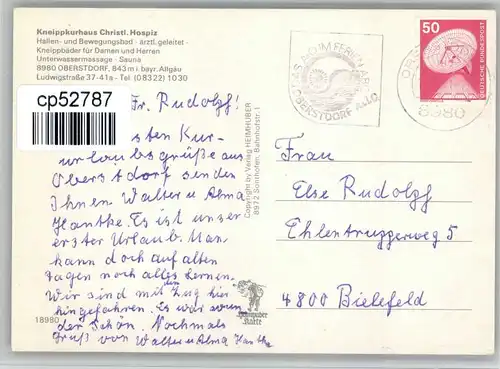 Kneippkurhaus Christl. Hospiz
Hallen- und Bewegungsbad · ärztl. geleitet ·
Kneippbäder für Damen und Herren
Unterwassermassage · Sauna
8980 OBERSTDORF, 843 m i bayr. Allgäu
Ludwigstraße 37-41a - Tel (08322) 1030
cp52787
Fr. Rudolff!
sten Kur-
urlaubsgrüße aus
Oberstdorf senden
Ihnen Walter u Alma
Hantke. Es ist unser
erster Urlaub. Man
kann doch auf alten
Tagen noch alles lernen.
Wir sind mit den Zug hier
hingefahren. Es war wun-
der Schön. Nochmals
Gruß von Walter u Alma Hantke
18980
Copyright by Verlag HEIMHUBER
8972 Sonthofen, Bahnhofstr. 1
Heimhuber
Karte
OBERSTDORF
8980
50
DEUTSCHE BUNDESPOST
Frau
Else Rudolff
Ehlentruperweg 5
4800 Bielefeld